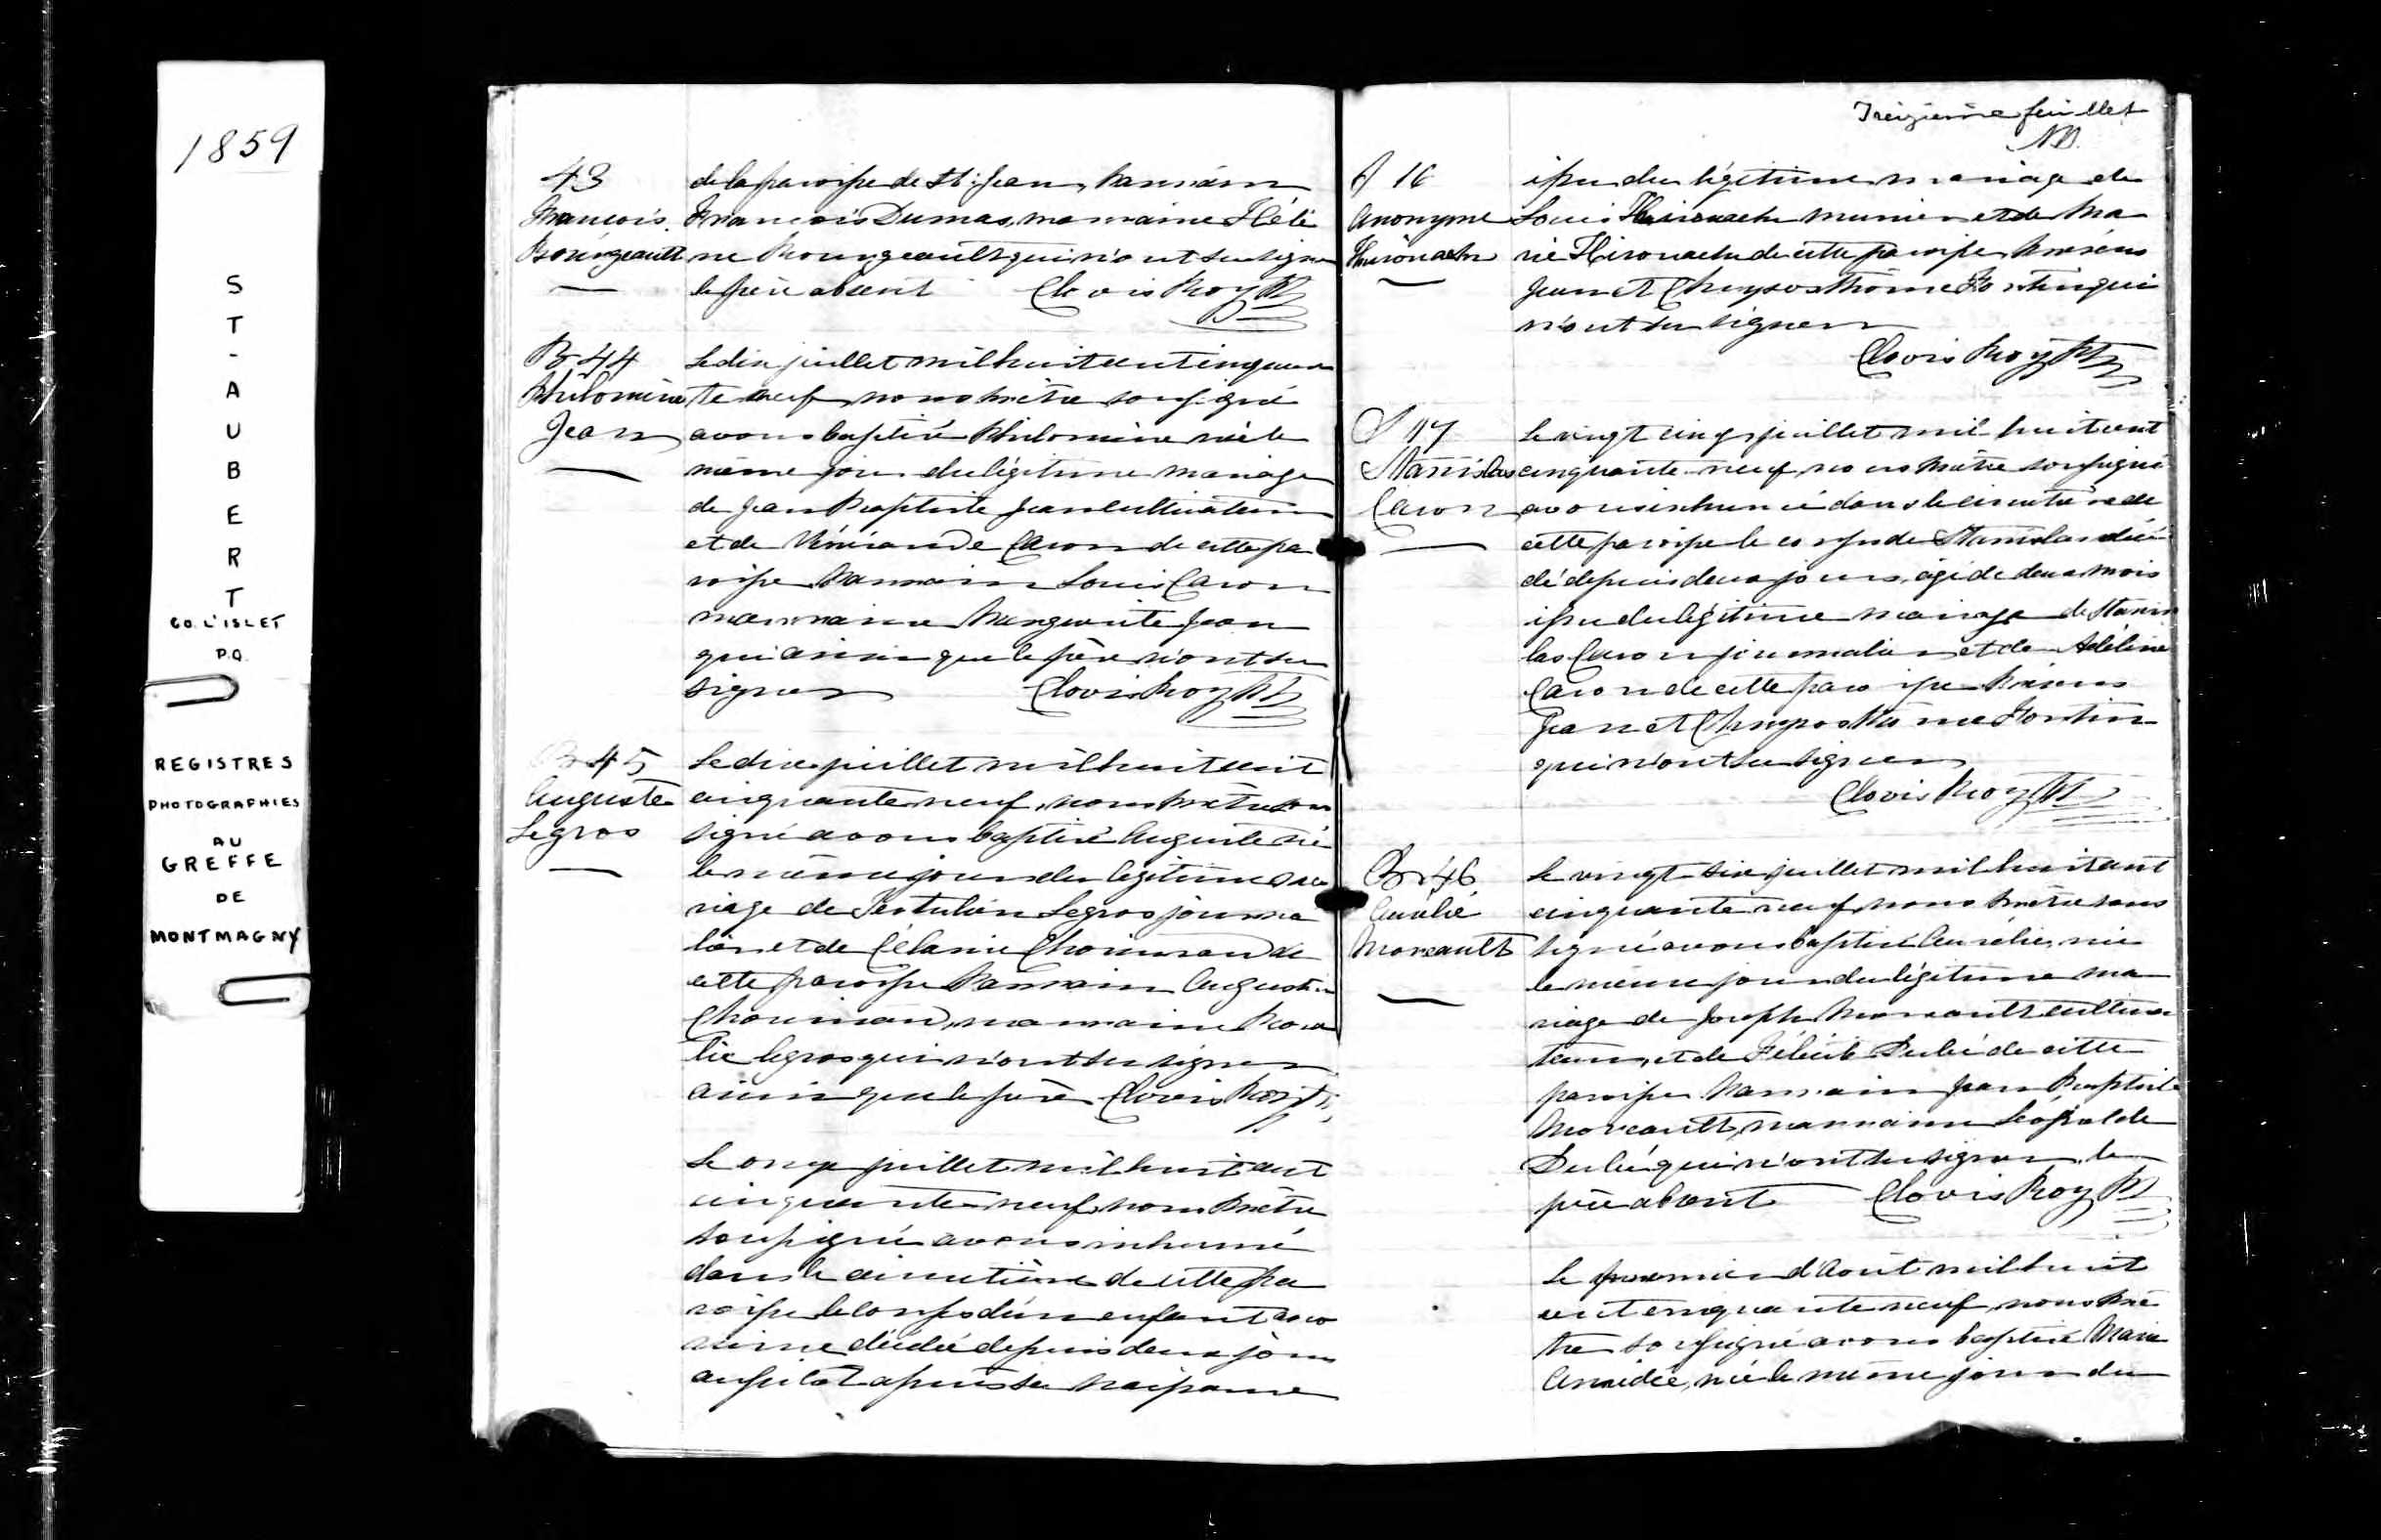 1859
ST-AUBERT
CO. L'ISLET
P.Q.
REGISTRES
PHOTOGRAPHIES
AU
GREFFE
DE
MONTMAGNY
43
François
Bourgeault
de la paroisse de St: Jean, Parrain
François Dumas, marraine Hélè
ne Bourgeault qui n'ont su signer
le père absent Clovis Roy Ptre
B 44
Philomène
Jean
Le dix juillet mil huit cent cinquan
te neuf, nous Prêtre soussigné
avons baptisé Philomène née le
même jour du légitime mariage
de Jean Baptiste Jean cultivateur
et de Vénérande Caron de cette pa
roisse Parrain Louis Caron
marraine Marguerite Jean
qui ainsi que le père n'ont su
signer Clovis Roy Ptre
B 45
Auguste
Legros
Le dix juillet mil huit cent
cinquante neuf, nous Prêtre sous
signé avons baptisé Auguste né
le même jour du légitime ma
riage de Tertulien Legros journa
lier et de Célanie Chouinard de
cette paroisse Parrain Augustin
Chouinard, marraine Rosa
lie Legros qui n'ont su signer
ainsi que le père Clovis Roy Ptre
Le onze juillet mil huit cent
cinquante neuf, nous Prêtre
soussigné avons inhumé
dans le cimetière de cette pa
roisse le corps d'un enfant ano
nime décédé depuis deux jours
aussitôt après sa naissance
Treizième feuillet
A 16
Anonyme
issu du légitime mariage de
Louis meunier et de Ma
rie de cette paroisse Présens
Jean et Chrysosthôme Fortin qui
n'ont su signer
Clovis Roy Ptre
S 17
Stanislas
Caron
Le vingt cinq juillet mil huit cent
cinquante neuf, nous Prêtre soussigné
avons inhumé dans le cimetière de
cette paroisse le corps de Stanislas décé
dé depuis deux jours, agé de deux mois
issu du légitime mariage de Stanis
las Caron journalier et de Adéline
Caron de cette paroisse Présens
Jean et Chrysosthôme Fortin
qui n'ont su signer
Clovis Roy Ptre
B 46
Aurélie
Moreault
Le vingt six juillet mil huit cent
cinquante neuf, nous Prêtre sous
signé avons baptisé Aurélie, née
le même jour du légitime ma
riage de Joseph Moreault cultiva
teur, et de Félicité Dubé de cette
paroisse Parrain Jean Baptiste
Moreault, marraine Léopolde
Dubé qui n'ont su signer, le
père absent Clovis Roy Ptre
Le premier d'Août mil huit
cent cinquante neuf, nous Prê
tre soussigné avons baptisé Marie
née le même jour du